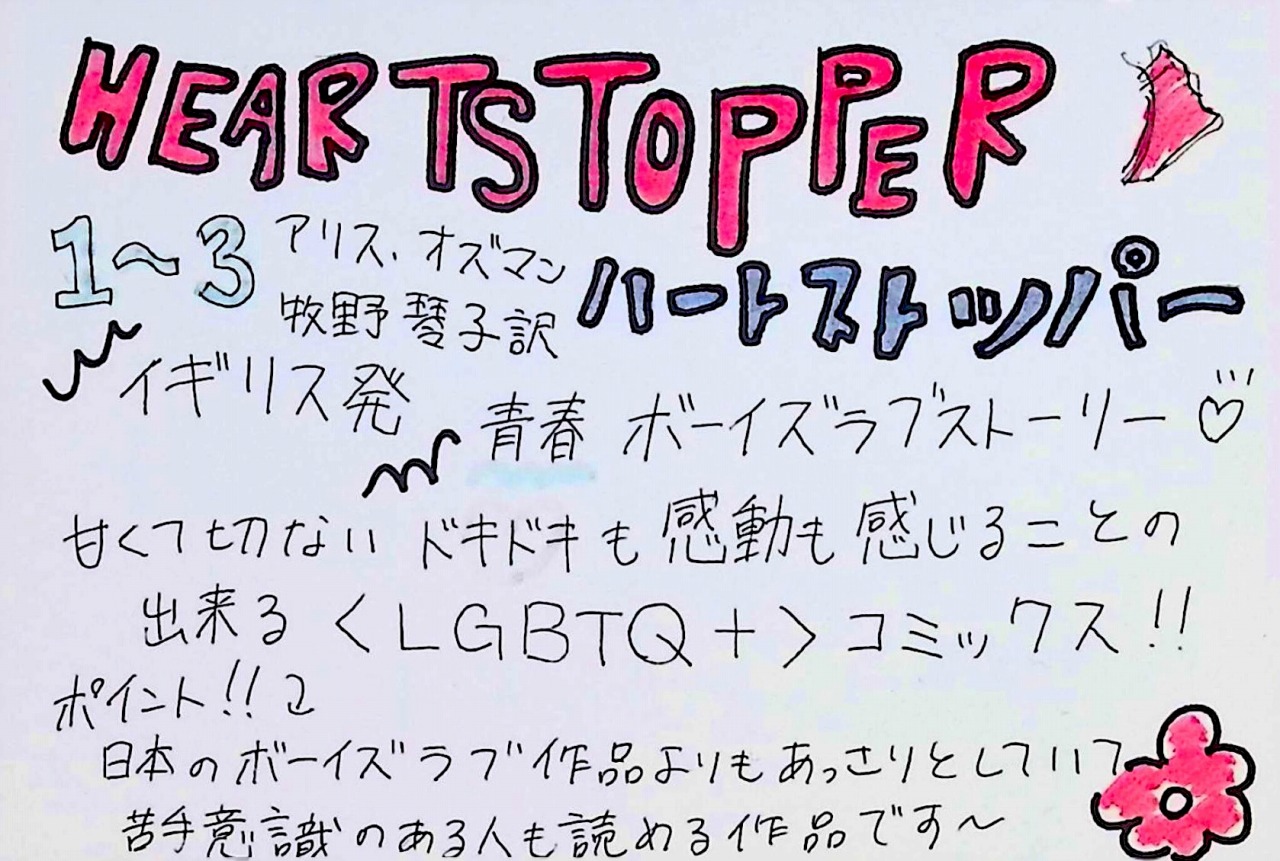 HEARTSTOPPER
1〜3
アリス、オズマン
牧野琴子訳
ハートストッパー
イギリス発
青春 ボーイズラブストーリー♡
甘くて切ない ドキドキも感動も感じることの
出来る〈LGBTQ+〉コミックス!!
ポイント!!
日本のボーイズラブ作品よりもあっさりとしていて
苦手意識のある人も読める作品です〜